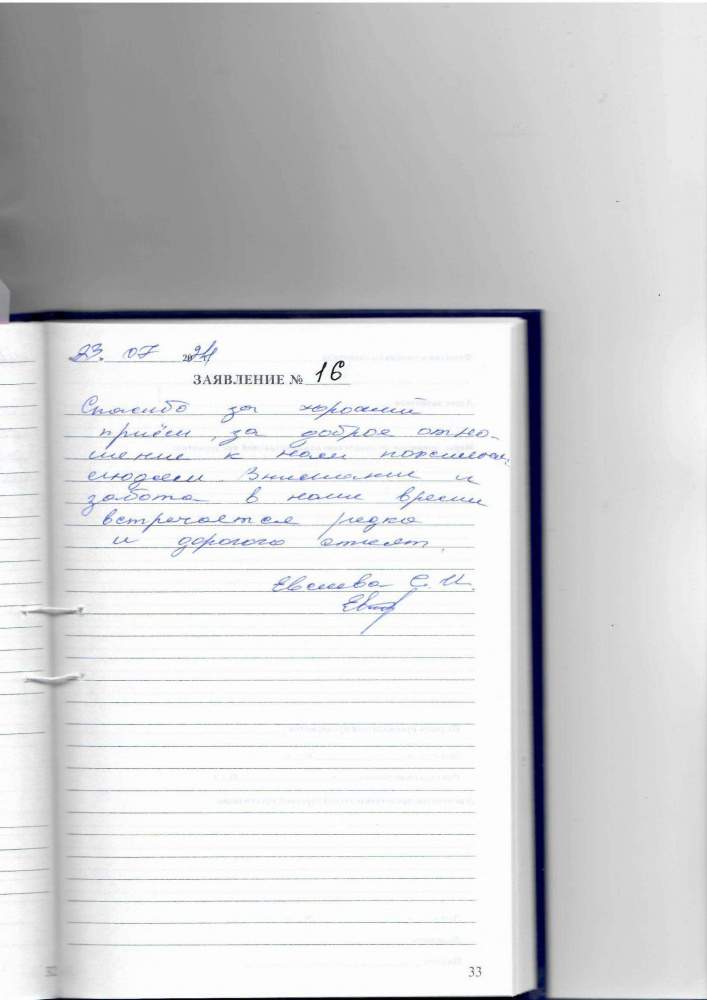 23. 07 2024
ЗАЯВЛЕНИЕ № 16
Спасибо за хороший
приём, за доброе отно-
шение к нам пожилым
людям. Внимание и
забота в наше время
встречается редко
и дорогого стоят.
С. И.
33